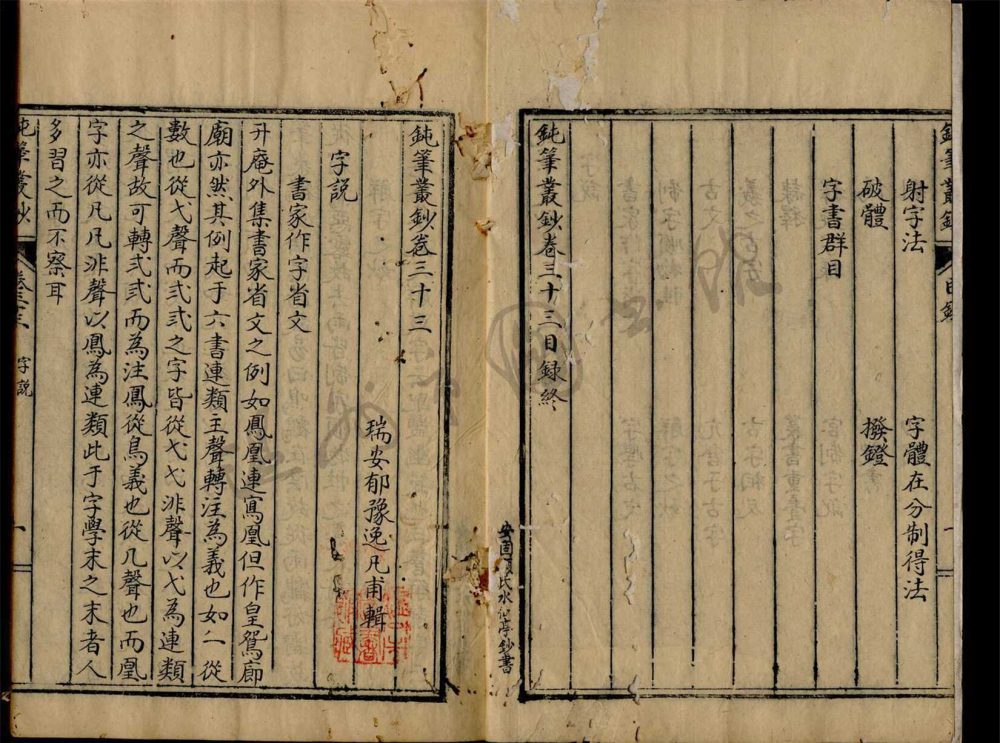 射字法 字體在分制得法
破體 撥鐙
字書群目
鈍筆叢鈔卷三十三目録終
氏水仙亭鈔書
鈍筆叢鈔卷三十三
瑞安郁豫逸凡甫輯
字說
書家作字省文
升庵外集書家省文之例如鳳凰連寫凰但作皇鴛廊
廟亦然其例起于六書連類主聲轉注為義也如二從
數也從弋聲而弍弎之字皆從弋弋非聲以弋為連類
之聲故可轉弍弎而為注鳳從鳥義也從几聲也而凰
字亦從凡凡非聲以鳳為連類此于字學末之末者人
多習之而不察耳
字說